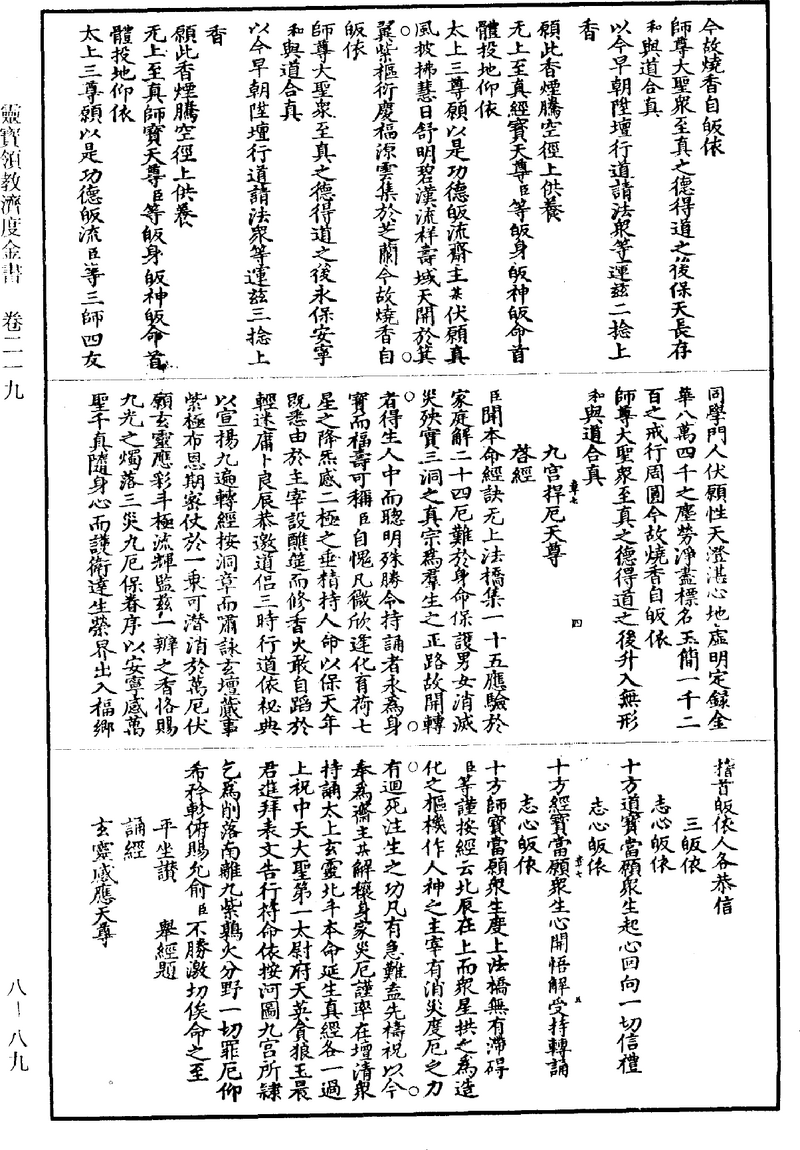 今故燒香自皈依
師尊大聖衆至真之德得道之後保天長存
和與道合真
以今早朝陞壇行道請法衆等運茲二捻上
香
願此香煙騰空徑上供養
无上至真經寶天尊臣等皈身皈神皈命首
體投地仰依
太上三尊願以是功德皈流齋主某伏願真
風披拂慧日舒明碧漢流祥壽域天開於箕
翼紫樞衍慶福源雲集於芝蘭今故燒香自
皈依
師尊大聖衆至真之德得道之後永保安寧
和與道合真
以今早朝陞壇行道請法衆等運茲三捻上
香
願此香煙騰空徑上供養
无上至真師寶天尊臣等皈身皈神皈命首
體投地仰依
太上三尊願以是功德皈流臣等三師四友
同學門人伏願性天澄湛心地虛明定錄金
華八萬四千之塵勞淨盡標名玉簡一千二
百之戒行周圓今故燒香自皈依
師尊大聖衆至真之德得道之後升入無形
和與道合真
九宮捍厄天尊
章七 四
啓經
臣聞本命經訣无上法橋集一十五應驗於
家庭解二十四厄難於身命保護男女消滅
災殃實三洞之真宗爲羣生之正路故開轉
者得生人中而聰明殊勝令持誦者永爲身
寶而福壽可稱臣自愧凡微欣逢化育荷七
星之降炁感二極之垂精持人命以保天年
既悉由於主宰設醮筵而修香火敢自蹈於
輕迷庸卜良辰恭邀道侶三時行道依秘典
以宣揚九遍轉經按洞章而肅詠玄壇蕆事
紫極布恩期密仗於一乘可潛消於萬厄伏
願玄靈應彩斗極流輝監茲一瓣之香恪賜
九光之燭落三災九厄保眷序以安寧感萬
聖千真隨身心而護衛達生榮界出入福鄉
稽首皈依人各恭信
三皈依
志心皈依
十方道寶當願衆生起心回向一切信禮
志心皈依
章七 五
十方經寶當願衆生心開悟解受持轉誦
志心皈依
十方師寶當願衆生度上法橋無有滯碍
臣等謹按經云北辰在上而衆星拱之爲造
化之樞機作人神之主宰有消災度厄之力
有迴死注生之功凡有急難盍先禱祝以今
奉爲齋主某解穰身家災厄謹率在壇清衆
持誦太上玄靈北斗本命延生真經各一過
上祝中天大聖第一太尉府天英貪狼玉晨
君進拜表文告行符命依按河圖九宮所隸
乞爲削落南離九紫鶉火分野一切罪厄仰
希矜軫俯賜允俞臣不勝激切俟命之至
平坐讃 舉經題
誦經
玄靈感應天尊
靈寶領教濟度金書 卷二一九
八-八九